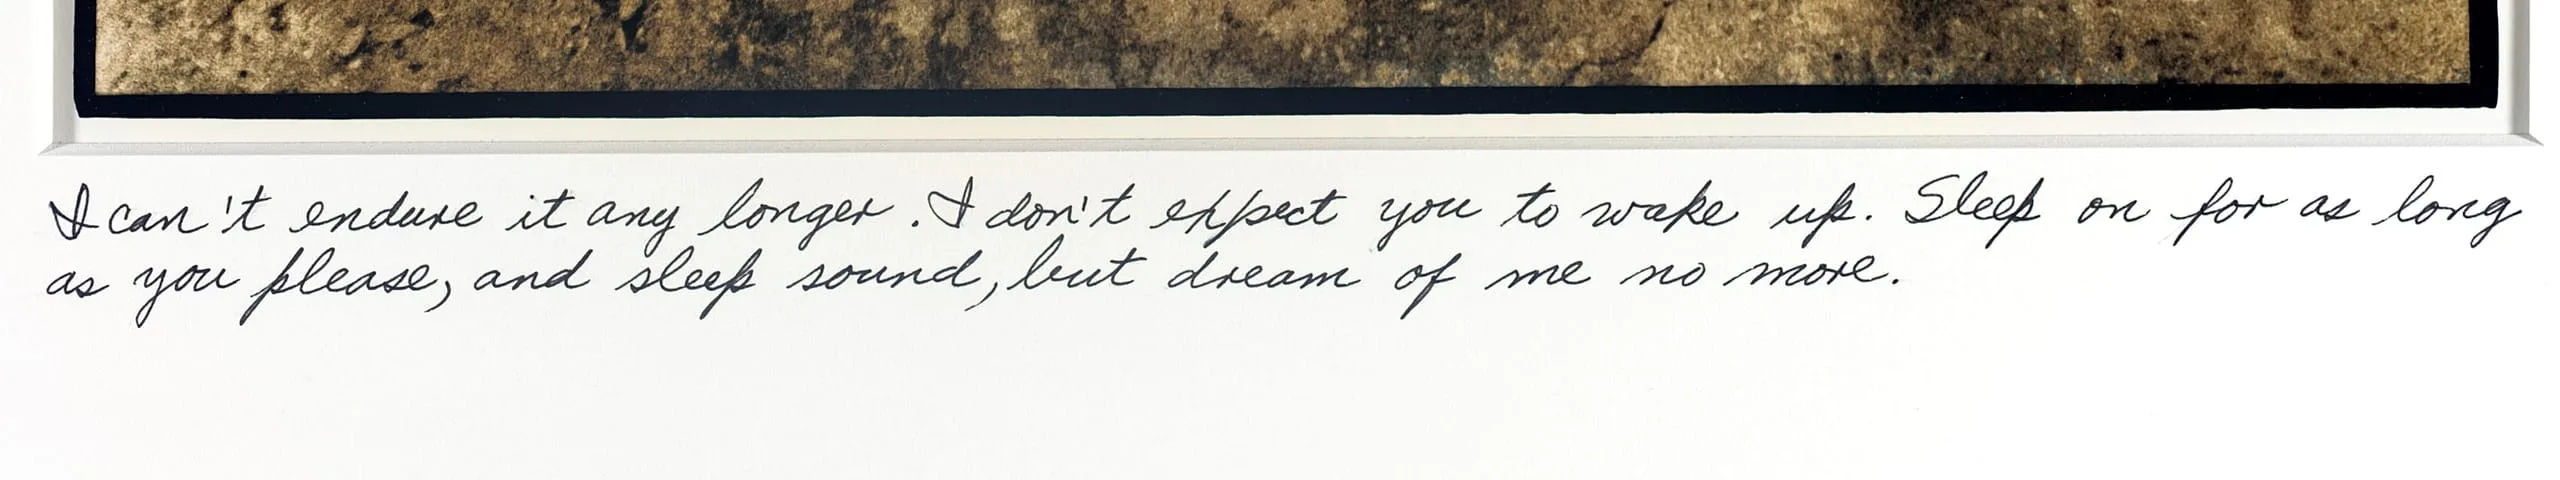 I can't endure it any longer. I don't expect you to wake up. Sleep on for as long
as you please, and sleep sound, but dream of me no more.